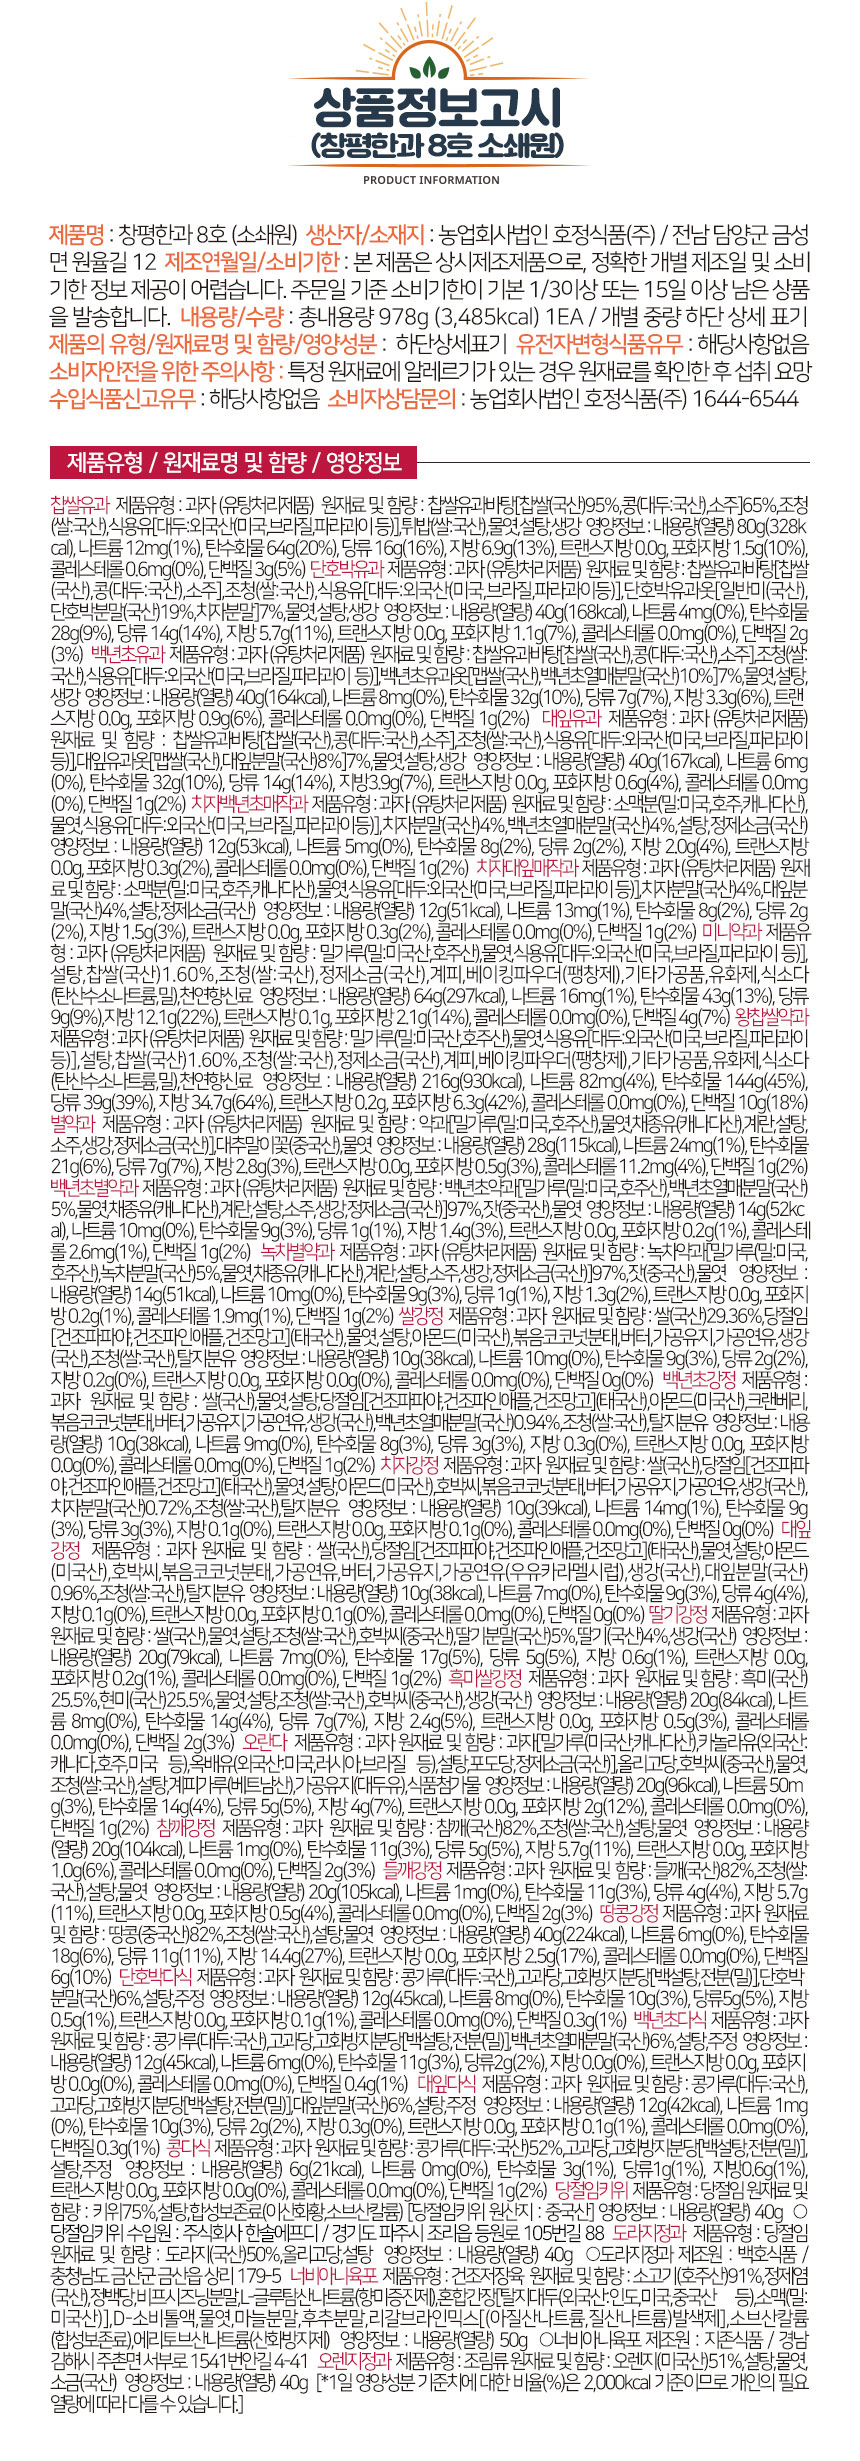 상품정보고시
(창평한과 8호 소쇄원)
PRODUCT INFORMATION
제품명 : 창평한과 8호 (소쇄원) 생산자/소재지 : 농업회사법인 호정식품(주) / 전남 담양군 금성
면 원율길 12 제조연월일/소비기한 : 본 제품은 상시제조제품으로, 정확한 개별 제조일 및 소비
기한 정보 제공이 어렵습니다. 주문일 기준 소비기한이 기본 1/3이상 또는 15일 이상 남은 상품
을 발송합니다. 내용량/수량 : 총내용량 978g (3,485kcal) 1EA / 개별 중량 하단 상세 표기
제품의 유형/원재료명 및 함량/영양성분 : 하단상세표기 유전자변형식품유무 : 해당사항없음
소비자안전을 위한 주의사항 : 특정 원재료에 알레르기가 있는 경우 원재료를 확인한 후 섭취 요망
수입식품신고유무 : 해당사항없음 소비자상담문의 : 농업회사법인 호정식품(주) 1644-6544
제품유형 / 원재료명 및 함량 / 영양정보
찹쌀유과 제품유형 : 과자 (유탕처리제품) 원재료 및 함량 : 찹쌀유과바탕[찹쌀(국산)95%,콩(대두:국산),소주]65%,조청
(쌀:국산),식용유[대두:외국산(미국,브라질,파라과이 등)],튀밥(쌀:국산),물엿,설탕,생강 영양정보 : 내용량(열량) 80g(328k
cal), 나트륨 12mg(1%), 탄수화물 64g(20%), 당류 16g(16%), 지방 6.9g(13%), 트랜스지방 0.0g, 포화지방 1.5g(10%),
콜레스테롤 0.6mg(0%), 단백질 3g(5%) 단호박유과 제품유형 : 과자 (유탕처리제품) 원재료 및 함량 : 찹쌀유과바탕[찹쌀
(국산),콩(대두:국산),소주],조청(쌀:국산),식용유[대두:외국산(미국,브라질,파라과이등)],단호박유과옷[일반미(국산),
단호박분말(국산)19%,치자분말]7%,물엿,설탕,생강 영양정보 : 내용량(열량) 40g(168kcal), 나트륨 4mg(0%), 탄수화물
28g(9%), 당류 14g(14%), 지방 5.7g(11%), 트랜스지방 0.0g, 포화지방 1.1g(7%), 콜레스테롤 0.0mg(0%), 단백질 2g
(3%) 백년초유과 제품유형 : 과자 (유탕처리제품) 원재료 및 함량 : 찹쌀유과바탕[찹쌀(국산),콩(대두:국산),소주],조청(쌀:
국산),식용유[대두:외국산(미국,브라질,파라과이 등)],백년초유과옷[맵쌀(국산),백년초열매분말(국산)10%]7%,물엿,설탕,
생강 영양정보 : 내용량(열량) 40g(164kcal), 나트륨 8mg(0%), 탄수화물 32g(10%), 당류 7g(7%), 지방 3.3g(6%), 트랜
스지방 0.0g, 포화지방 0.9g(6%), 콜레스테롤 0.0mg(0%), 단백질 1g(2%) 대잎유과 제품유형 : 과자 (유탕처리제품)
원재료 및 함량 : 찹쌀유과바탕[찹쌀(국산),콩(대두:국산),소주],조청(쌀:국산),식용유[대두:외국산(미국,브라질,파라과이
등)],대잎유과옷[맵쌀(국산),대잎분말(국산)8%]7%,물엿,설탕,생강 영양정보 : 내용량(열량) 40g(167kcal), 나트륨 6mg
(0%), 탄수화물 32g(10%), 당류 14g(14%), 지방3.9g(7%), 트랜스지방 0.0g, 포화지방 0.6g(4%), 콜레스테롤 0.0mg
(0%), 단백질 1g(2%) 치자백년초매작과 제품유형 : 과자 (유탕처리제품) 원재료 및 함량 : 소맥분(밀:미국,호주,캐나다산),
물엿,식용유[대두:외국산(미국,브라질,파라과이등)],치자분말(국산)4%,백년초열매분말(국산)4%,설탕,정제소금(국산)
영양정보 : 내용량(열량) 12g(53kcal), 나트륨 5mg(0%), 탄수화물 8g(2%), 당류 2g(2%), 지방 2.0g(4%), 트랜스지방
0.0g, 포화지방 0.3g(2%), 콜레스테롤 0.0mg(0%), 단백질 1g(2%) 치자대잎매작과 제품유형 : 과자 (유탕처리제품) 원재
료 및 함량 : 소맥분(밀:미국,호주,캐나다산),물엿,식용유[대두:외국산(미국,브라질,파라과이 등)],치자분말(국산)4%,대잎분
말(국산)4%,설탕,정제소금(국산) 영양정보 : 내용량(열량) 12g(51kcal), 나트륨 13mg(1%), 탄수화물 8g(2%), 당류 2g
(2%), 지방 1.5g(3%), 트랜스지방 0.0g, 포화지방 0.3g(2%), 콜레스테롤 0.0mg(0%), 단백질 1g(2%) 미니약과 제품유
형 : 과자 (유탕처리제품) 원재료 및 함량 : 밀가루(밀:미국산,호주산),물엿,식용유[대두:외국산(미국,브라질,파라과이 등)],
설탕,찹쌀(국산)1.60%,조청(쌀:국산),정제소금(국산),계피,베이킹파우더(팽창제),기타가공품,유화제,식소다
(탄산수소나트륨,밀),천연향신료 영양정보 : 내용량(열량) 64g(297kcal), 나트륨 16mg(1%), 탄수화물 43g(13%), 당류
9g(9%),지방 12.1g(22%), 트랜스지방 0.1g, 포화지방 2.1g(14%), 콜레스테롤 0.0mg(0%), 단백질 4g(7%) 왕찹쌀약과
제품유형 : 과자 (유탕처리제품) 원재료 및 함량 : 밀가루(밀:미국산,호주산),물엿,식용유[대두:외국산(미국,브라질,파라과이
등)],설탕,찹쌀(국산)1.60%,조청(쌀:국산),정제소금(국산),계피,베이킹파우더(팽창제),기타가공품,유화제,식소다
(탄산수소나트륨,밀),천연향신료 영양정보 : 내용량(열량) 216g(930kcal), 나트륨 82mg(4%), 탄수화물 144g(45%),
당류 39g(39%), 지방 34.7g(64%), 트랜스지방 0.2g, 포화지방 6.3g(42%), 콜레스테롤 0.0mg(0%), 단백질 10g(18%)
별약과 제품유형 : 과자 (유탕처리제품) 원재료 및 함량 : 약과[밀가루(밀:미국,호주산),물엿,채종유(캐나다산),계란,설탕,
소주,생강,정제소금(국산)],대추말이꽃(중국산),물엿 영양정보 : 내용량(열량) 28g(115kcal), 나트륨 24mg(1%), 탄수화물
21g(6%), 당류 7g(7%), 지방 2.8g(3%), 트랜스지방 0.0g, 포화지방 0.5g(3%), 콜레스테롤 11.2mg(4%), 단백질 1g(2%)
백년초별약과 제품유형 : 과자 (유탕처리제품) 원재료 및 함량 : 백년초약과[밀가루(밀:미국,호주산),백년초열매분말(국산)
5%,물엿,채종유(캐나다산),계란,설탕,소주,생강,정제소금(국산)]97%,잣(중국산),물엿 영양정보 : 내용량(열량) 14g(52kc
al), 나트륨 10mg(0%), 탄수화물 9g(3%), 당류 1g(1%), 지방 1.4g(3%), 트랜스지방 0.0g, 포화지방 0.2g(1%), 콜레스테
롤 2.6mg(1%), 단백질 1g(2%) 녹차별약과 제품유형 : 과자 (유탕처리제품) 원재료 및 함량 : 녹차약과[밀가루(밀:미국,
호주산),녹차분말(국산)5%,물엿,채종유(캐나다산),계란,설탕,소주,생강,정제소금(국산)]97%,잣(중국산),물엿 영양정보 :
내용량(열량) 14g(51kcal), 나트륨 10mg(0%), 탄수화물 9g(3%), 당류 1g(1%), 지방 1.3g(2%), 트랜스지방 0.0g, 포화지
방 0.2g(1%), 콜레스테롤 1.9mg(1%), 단백질 1g(2%) 쌀강정 제품유형 : 과자 원재료 및 함량 : 쌀(국산)29.36%,당절임
[건조파파야,건조파인애플,건조망고](태국산),물엿,설탕,아몬드(미국산),볶음코코넛분태,버터,가공유지,가공연유,생강
(국산),조청(쌀:국산),탈지분유 영양정보 : 내용량(열량) 10g(38kcal), 나트륨 10mg(0%), 탄수화물 9g(3%), 당류 2g(2%),
지방 0.2g(0%), 트랜스지방 0.0g, 포화지방 0.0g(0%), 콜레스테롤 0.0mg(0%), 단백질 0g(0%) 백년초강정 제품유형 :
과자 원재료 및 함량 : 쌀(국산),물엿,설탕,당절임[건조파파야,건조파인애플,건조망고](태국산),아몬드(미국산),크랜베리,
볶음코코넛분태,버터,가공유지,가공연유,생강(국산),백년초열매분말(국산)0.94%,조청(쌀:국산),탈지분유 영양정보 : 내용
량(열량) 10g(38kcal), 나트륨 9mg(0%), 탄수화물 8g(3%), 당류 3g(3%), 지방 0.3g(0%), 트랜스지방 0.0g, 포화지방
0.0g(0%), 콜레스테롤 0.0mg(0%), 단백질 1g(2%) 치자강정 제품유형 : 과자 원재료 및 함량 : 쌀(국산),당절임[건조파파
야,건조파인애플,건조망고](태국산),물엿,설탕,아몬드(미국산),호박씨,볶음코코넛분태,버터,가공유지,가공연유,생강(국산),
치자분말(국산)0.72%,조청(쌀:국산),탈지분유 영양정보 : 내용량(열량) 10g(39kcal), 나트륨 14mg(1%), 탄수화물 9g
(3%), 당류 3g(3%), 지방 0.1g(0%), 트랜스지방 0.0g, 포화지방 0.1g(0%), 콜레스테롤 0.0mg(0%), 단백질 0g(0%) 대잎
강정 제품유형 : 과자 원재료 및 함량 : 쌀(국산),당절임[건조파파야,건조파인애플,건조망고](태국산),물엿,설탕,아몬드
(미국산),호박씨,볶음코코넛분태,가공연유,버터,가공유지,가공연유(우유카라멜시럽),생강(국산),대잎분말(국산)
0.96%,조청(쌀:국산),탈지분유 영양정보 : 내용량(열량) 10g(38kcal), 나트륨 7mg(0%), 탄수화물 9g(3%), 당류 4g(4%),
지방 0.1g(0%), 트랜스지방 0.0g, 포화지방 0.1g(0%), 콜레스테롤 0.0mg(0%), 단백질 0g(0%) 딸기강정 제품유형 : 과자
원재료 및 함량 : 쌀(국산),물엿,설탕,조청(쌀:국산),호박씨(중국산),딸기분말(국산)5%,딸기(국산)4%,생강(국산) 영양정보 :
내용량(열량) 20g(79kcal), 나트륨 7mg(0%), 탄수화물 17g(5%), 당류 5g(5%), 지방 0.6g(1%), 트랜스지방 0.0g,
포화지방 0.2g(1%), 콜레스테롤 0.0mg(0%), 단백질 1g(2%) 흑미쌀강정 제품유형 : 과자 원재료 및 함량 : 흑미(국산)
25.5%,현미(국산)25.5%,물엿,설탕,조청(쌀:국산),호박씨(중국산),생강(국산) 영양정보 : 내용량(열량) 20g(84kcal), 나트
륨 8mg(0%), 탄수화물 14g(4%), 당류 7g(7%), 지방 2.4g(5%), 트랜스지방 0.0g, 포화지방 0.5g(3%), 콜레스테롤
0.0mg(0%), 단백질 2g(3%) 오란다 제품유형 : 과자 원재료 및 함량 : 과자[밀가루(미국산,캐나다산),카놀라유(외국산:
캐나다,호주,미국 등),옥배유(외국산:미국,러시아,브라질 등),설탕,포도당,정제소금(국산)],올리고당,호박씨(중국산),물엿,
조청(쌀:국산),설탕,계피가루(베트남산),가공유지(대두유),식품첨가물 영양정보 : 내용량(열량) 20g(96kcal), 나트륨 50m
g(3%), 탄수화물 14g(4%), 당류 5g(5%), 지방 4g(7%), 트랜스지방 0.0g, 포화지방 2g(12%), 콜레스테롤 0.0mg(0%),
단백질 1g(2%) 참깨강정 제품유형 : 과자 원재료 및 함량 : 참깨(국산)82%,조청(쌀:국산),설탕,물엿 영양정보 : 내용량
(열량) 20g(104kcal), 나트륨 1mg(0%), 탄수화물 11g(3%), 당류 5g(5%), 지방 5.7g(11%), 트랜스지방 0.0g, 포화지방
1.0g(6%), 콜레스테롤 0.0mg(0%), 단백질 2g(3%) 들깨강정 제품유형 : 과자 원재료 및 함량 : 들깨(국산)82%,조청(쌀:
국산),설탕,물엿 영양정보 : 내용량(열량) 20g(105kcal), 나트륨 1mg(0%), 탄수화물 11g(3%), 당류 4g(4%), 지방 5.7g
(11%), 트랜스지방 0.0g, 포화지방 0.5g(4%), 콜레스테롤 0.0mg(0%), 단백질 2g(3%) 땅콩강정 제품유형 : 과자 원재료
및 함량 : 땅콩(중국산)82%,조청(쌀:국산),설탕,물엿 영양정보 : 내용량(열량) 40g(224kcal), 나트륨 6mg(0%), 탄수화물
18g(6%), 당류 11g(11%), 지방 14.4g(27%), 트랜스지방 0.0g, 포화지방 2.5g(17%), 콜레스테롤 0.0mg(0%), 단백질
6g(10%) 단호박다식 제품유형 : 과자 원재료 및 함량 : 콩가루(대두:국산),고과당,고화방지분당[백설탕,전분(밀)],단호박
분말(국산)6%,설탕,주정 영양정보 : 내용량(열량) 12g(45kcal), 나트륨 8mg(0%), 탄수화물 10g(3%), 당류5g(5%), 지방
0.5g(1%), 트랜스지방 0.0g, 포화지방 0.1g(1%), 콜레스테롤 0.0mg(0%), 단백질 0.3g(1%) 백년초다식 제품유형 : 과자
원재료 및 함량 : 콩가루(대두:국산),고과당,고화방지분당[백설탕,전분(밀)],백년초열매분말(국산)6%,설탕,주정 영양정보 :
내용량(열량) 12g(45kcal), 나트륨 6mg(0%), 탄수화물 11g(3%), 당류2g(2%), 지방 0.0g(0%), 트랜스지방 0.0g, 포화지
방 0.0g(0%), 콜레스테롤 0.0mg(0%), 단백질 0.4g(1%) 대잎다식 제품유형 : 과자 원재료 및 함량 : 콩가루(대두:국산),
고과당,고화방지분당[백설탕,전분(밀)],대잎분말(국산)6%,설탕,주정 영양정보 : 내용량(열량) 12g(42kcal), 나트륨 1mg
(0%), 탄수화물 10g(3%), 당류 2g(2%), 지방 0.3g(0%), 트랜스지방 0.0g, 포화지방 0.1g(1%), 콜레스테롤 0.0mg(0%),
단백질 0.3g(1%) 콩다식 제품유형 : 과자 원재료 및 함량 : 콩가루(대두:국산)52%,고과당,고화방지분당[백설탕,전분(밀)],
설탕,주정 영양정보 : 내용량(열량) 6g(21kcal), 나트륨 0mg(0%), 탄수화물 3g(1%), 당류1g(1%), 지방0.6g(1%),
트랜스지방 0.0g, 포화지방 0.0g(0%), 콜레스테롤 0.0mg(0%), 단백질 1g(2%) 당절임키위 제품유형 : 당절임 원재료 및
함량 : 키위75%,설탕,합성보존료(이산화황,소브산칼륨) [당절임키위 원산지 : 중국산] 영양정보 : 내용량(열량) 40g ○
당절임키위 수입원 : 주식회사 한솔에프디 / 경기도 파주시 조리읍 등원로 105번길 88 도라지정과 제품유형 : 당절임
원재료 및 함량 : 도라지(국산)50%,올리고당,설탕 영양정보 : 내용량(열량) 40g ○도라지정과 제조원 : 백호식품 /
충청남도 금산군 금산읍 상리 179-5 너비아니육포 제품유형 : 건조저장육 원재료 및 함량 : 소고기(호주산)91%,정제염
(국산),정백당,비프시즈닝분말,L-글루탐산나트륨(향미증진제),혼합간장[탈지대두(외국산:인도,미국,중국산 등),소맥(밀:
미국산)],D-소비톨액,물엿,마늘분말,후추분말,리갈브라인믹스[(아질산나트륨,질산나트륨)발색제],소브산칼륨
(합성보존료),에리토브산나트륨(산화방지제) 영양정보 : 내용량(열량) 50g ○너비아니육포 제조원 : 지존식품 / 경남
김해시 주촌면 서부로 1541번안길 4-41 오렌지정과 제품유형 : 조림류 원재료 및 함량 : 오렌지(미국산)51%,설탕,물엿,
소금(국산) 영양정보 : 내용량(열량) 40g [*1일 영양성분 기준치에 대한 비율(%)은 2,000kcal 기준이므로 개인의 필요
열량에 따라 다를 수 있습니다.]